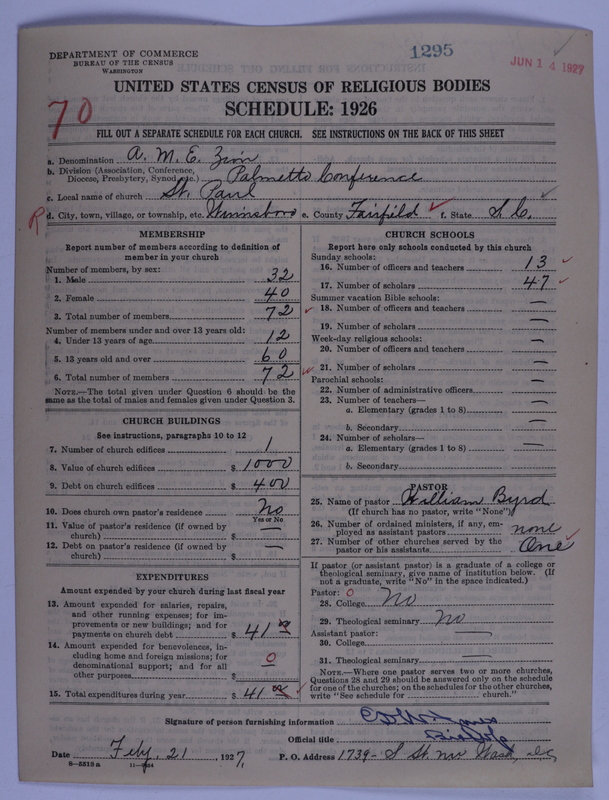 DEPARTMENT OF COMMERCE
BUREAU OF THE CENSUS
WASHINGTON
1295
JUN 14 1927
UNITED STATES CENSUS OF RELIGIOUS BODIES
SCHEDULE: 1926
70
FILL OUT A SEPARATE SCHEDULE FOR EACH CHURCH. SEE INSTRUCTIONS ON THE BACK OF THIS SHEET
a. Denomination A. M. E. Zion
b. Division (Association, Conference, Diocese, Presbytery, Synod, etc.) Palmetto Conference
c. Local name of church St. Paul
R d. City, town, village, or township, etc. Winnsboro e. County Fairfield f. State S. C.
MEMBERSHIP
Report number of members according to definition of
member in your church
Number of members, by sex:
1. Male 32
2. Female 40
3. Total number of members 72
Number of members under and over 13 years old:
4. Under 13 years of age 12
5. 13 years old and over 60
6. Total number of members 72
NOTE.—The total given under Question 6 should be the
same as the total of males and females given under Question 3.
CHURCH BUILDINGS
See instructions, paragraphs 10 to 12
7. Number of church edifices 1
8. Value of church edifices $ 1000
9. Debt on church edifices $ 400
10. Does church own pastor's residence? No
Yes or No
11. Value of pastor's residence (if owned by
church) $ —
12. Debt on pastor's residence (if owned by
church) $ —
EXPENDITURES
Amount expended by your church during last fiscal year
13. Amount expended for salaries, repairs,
and other running expenses; for im-
provements or new buildings; and for
payments on church debt $ 41
14. Amount expended for benevolences, in-
cluding home and foreign missions; for
denominational support; and for all
other purposes $ 0
15. Total expenditures during year $ 41
CHURCH SCHOOLS
Report here only schools conducted by this church
Sunday schools:
16. Number of officers and teachers 13
17. Number of scholars 47
Summer vacation Bible schools:
18. Number of officers and teachers —
19. Number of scholars —
Week-day religious schools:
20. Number of officers and teachers —
21. Number of scholars —
Parochial schools:
22. Number of administrative officers —
23. Number of teachers—
a. Elementary (grades 1 to 8) —
b. Secondary —
24. Number of scholars—
a. Elementary (grades 1 to 8) —
b. Secondary
PASTOR
25. Name of pastor William Byrd
(If church has no pastor, write "None")
26. Number of ordained ministers, if any, em-
ployed as assistant pastors none
27. Number of other churches served by the
pastor or his assistants One
If pastor (or assistant pastor) is a graduate of a college or
theological seminary, give name of institution below. (If
not a graduate, write "No" in the space indicated.)
Pastor: 0
28. College No
29. Theological seminary No
Assistant pastor:
30. College —
31. Theological seminary —
NOTE.—Where one pastor serves two or more churches,
Questions 28 and 29 should be answered only on the schedule
for one of the churches; on the schedules for the other churches,
write "See schedule for church."
Signature of person furnishing information
Official title Bishop
Date Feby. 21 1927, P. O. Address 1739- S St. NW Wash, D.C.
8-5318a